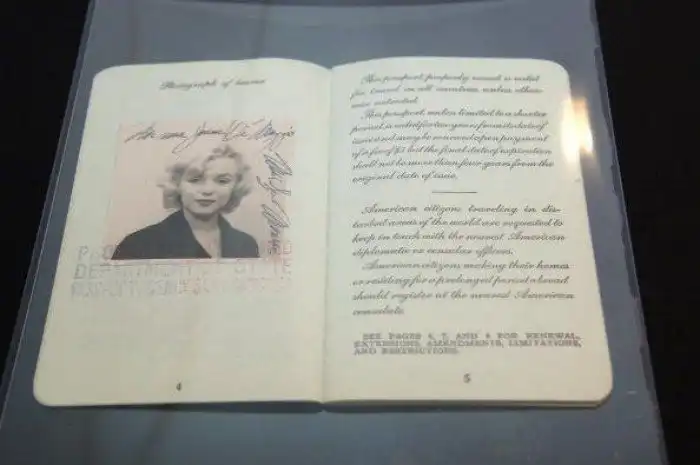 Photograph of bearer
Norma Jeane DiMaggio
DEPARTMENT OF STATE
4
This passport, properly visaed is valid
for travel in all countries unless other-
wise restricted.
This passport, unless limited to a shorter
period, is valid for two years from its date of
issue and may be renewed upon payment
of a fee of $5 but the final date of expiration
shall not be more than four years from the
original date of issue.
American citizens traveling in dis-
turbed areas of the world are requested to
keep in touch with the nearest American
diplomatic or consular officers.
American citizens making their homes
or residing for a prolonged period abroad
should register at the nearest American
consulate.
SEE PAGES 6, 7, AND 8 FOR RENEWAL,
EXTENSIONS, AMENDMENTS, LIMITATIONS,
AND RESTRICTIONS.
5